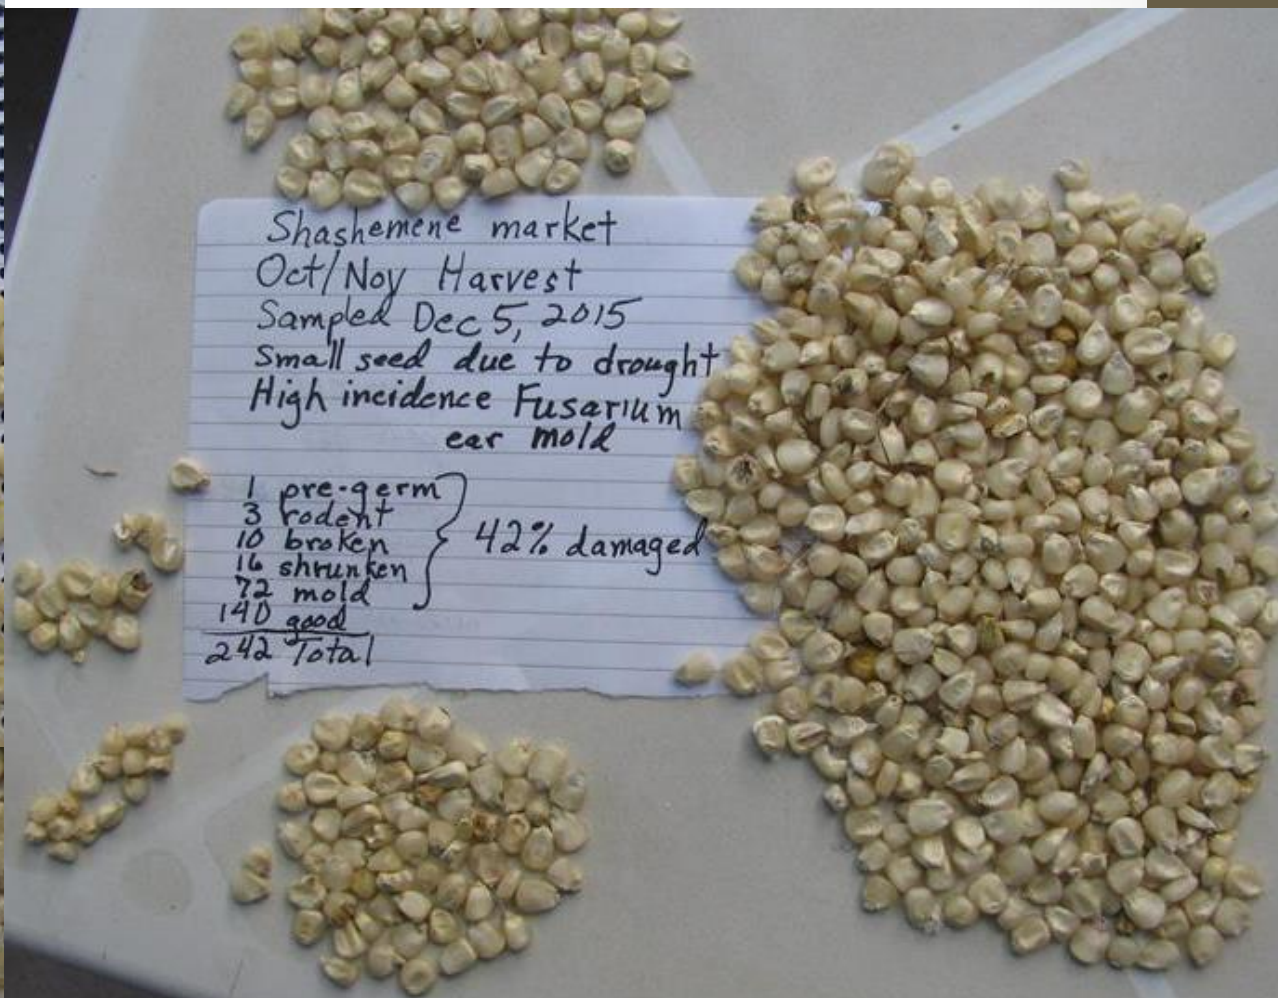 Shashemene market
Oct/Nov Harvest
Sampled Dec 5, 2015
Small seed due to drought
High incidence Fusarium
ear mold
1 pre-germ
3 rodent
10 broken
16 shrunken
72 mold
42% damaged
140 good
242 Total